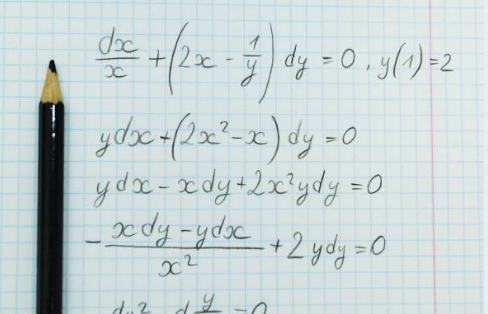 dx/x + (2x - 1/y) dy = 0, y(1) = 2
ydx + (2x² - x) dy = 0
ydx - xdy + 2x²ydy = 0
- (xdy - ydx)/x² + 2ydy = 0
dy² d y = 0